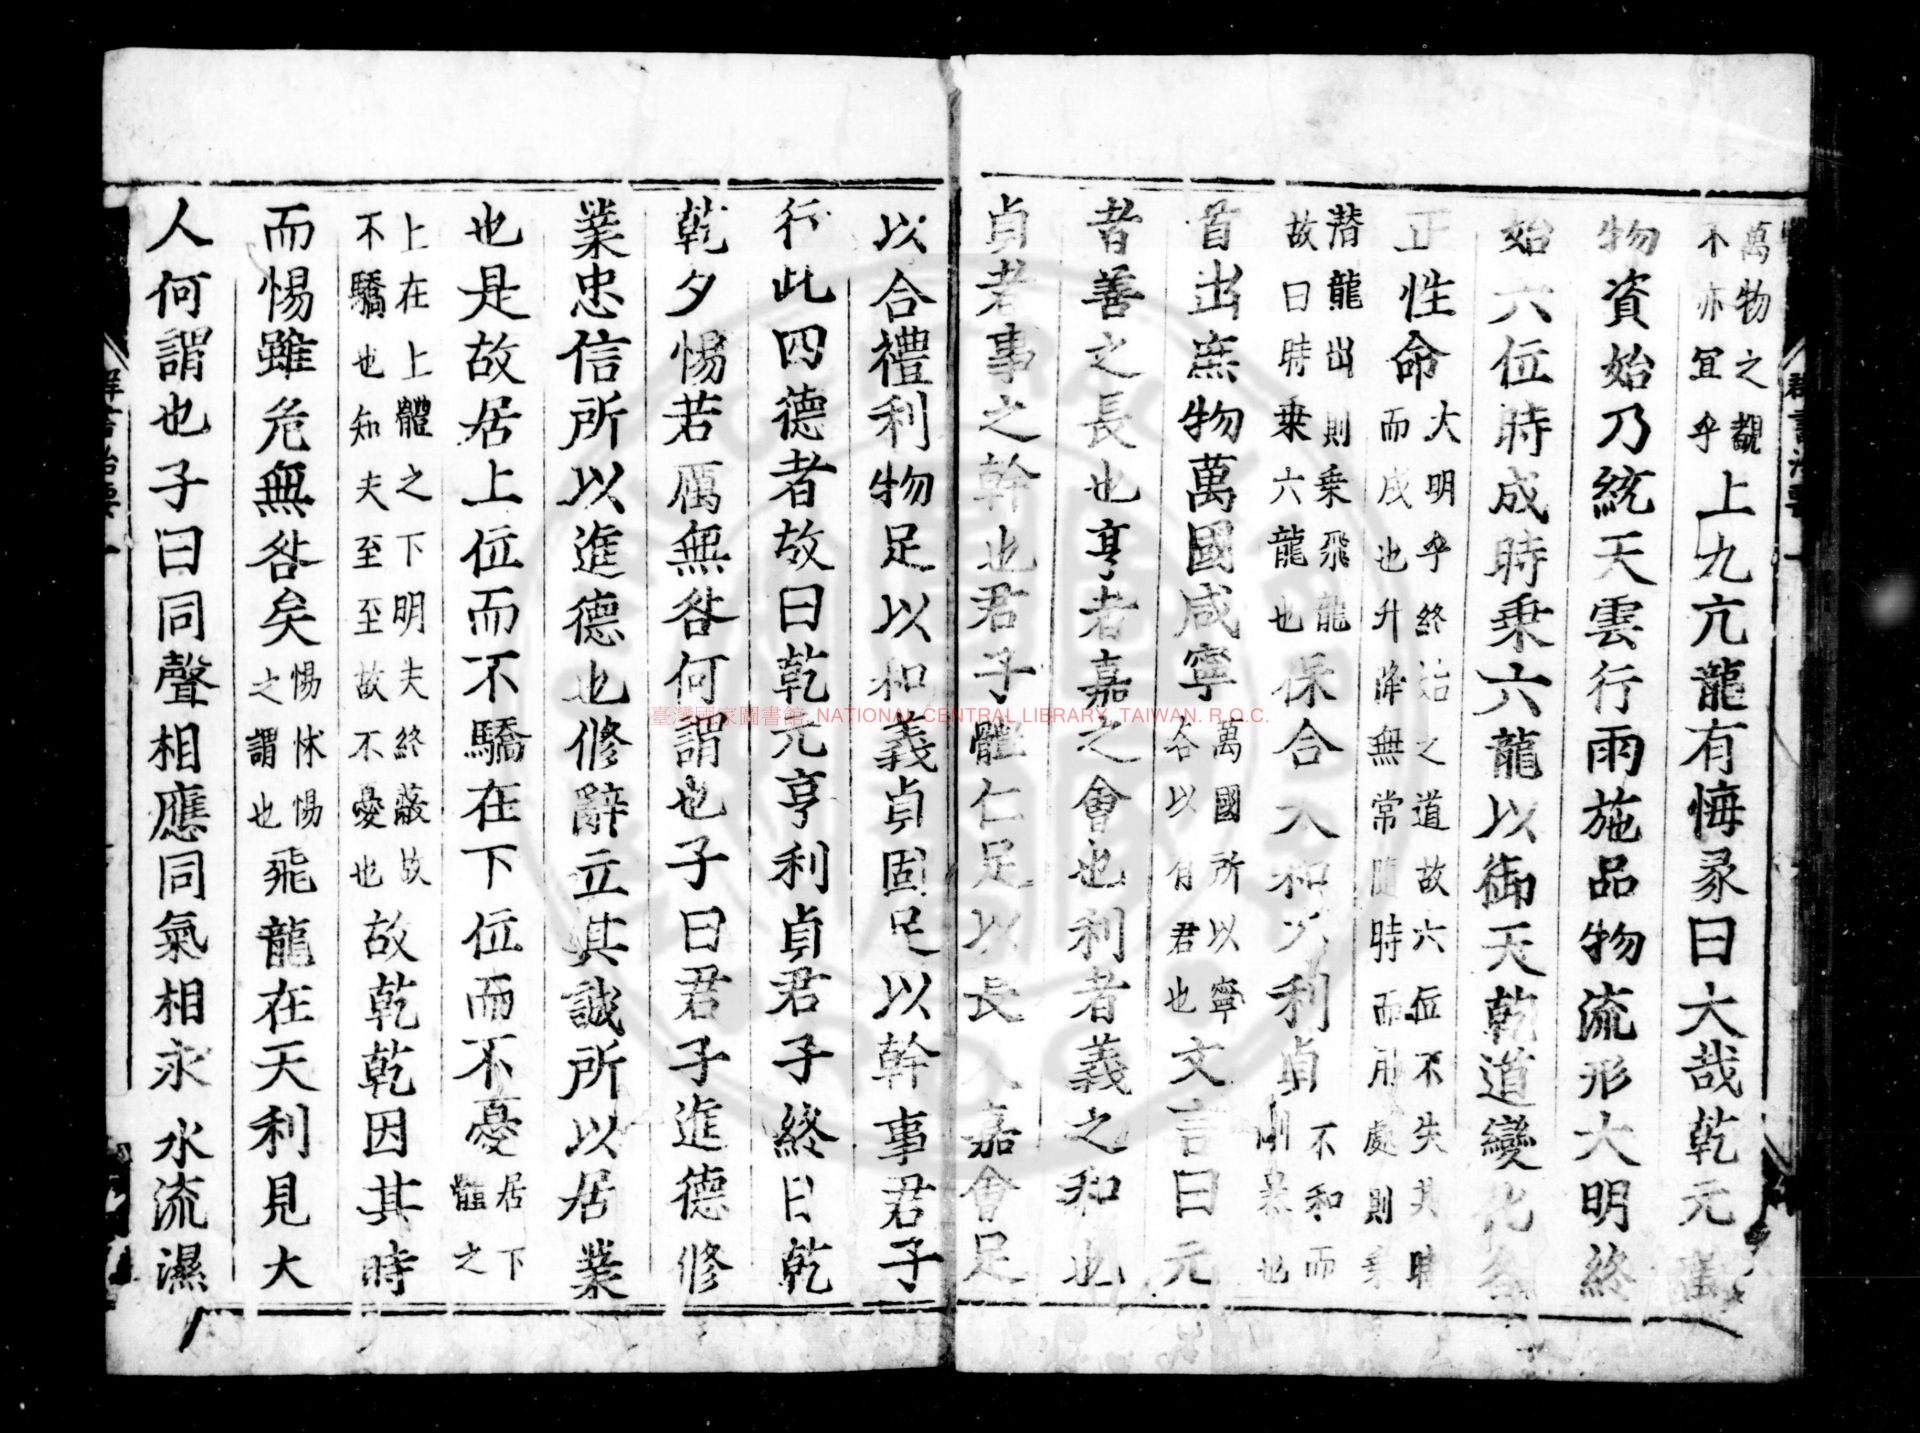 萬物之覩
不亦宜乎上九亢龍有悔彖曰大哉乾元萬
物資始乃統天雲行雨施品物流形大明終
始六位時成時乗六龍以御天乾道變化各
正性命大明乎終始之道故六位不失其時
而成也升降無常隨時而用處則乗
潜龍出則乗飛龍
故曰時乗六龍也保合大和乃利貞不和而
剛暴也
首出庶物萬國咸寧萬國所以寧
各以有君也文言曰元
者善之長也亨者嘉之會也利者義之和也
貞者事之幹也君子體仁足以長人嘉會足
以合禮利物足以和義貞固足以幹事君子
行此四德者故曰乾元亨利貞君子終日乾
乾夕惕若厲無咎何謂也子曰君子進德修
業忠信所以進德也修辭立其誠所以居業
也是故居上位而不驕在下位而不憂居下
體之
上在上體之下明夫終蔽故
不驕也知夫至至故不憂也故乾乾因其時
而惕雖危無咎矣惕怵惕
之謂也飛龍在天利見大
人何謂也子曰同聲相應同氣相求水流濕
群書治要一
臺灣國家圖書館, NATIONAL CENTRAL LIBRARY, TAIWAN. R.O.C.